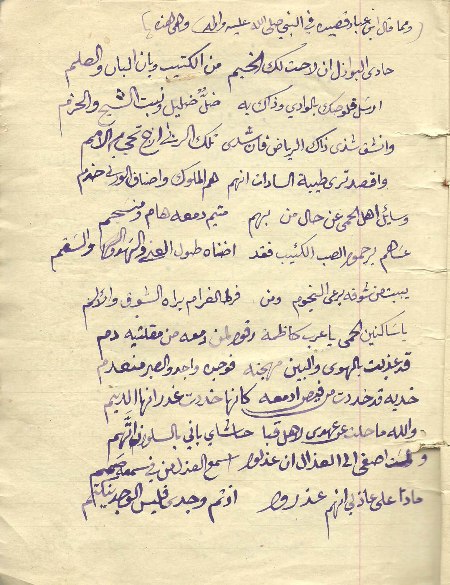 (ومما قال ابن عباد قصيده في النبي صلى الله عليه واله وهي هذه)
حادي البوازل ان لاحت لك الخيم من الكثيب وبان البان والعلم
ارسل قلوصك بالوادي وذاك به ضل ونبت الشيح والخزم
وانشق شذى ذاك الرياض فان شذى تلك الربى
واقصد ترى طيبة السادات انهم هم الملوك واصناف الورى خدم
وسائل اهل الحمى عن حال من بهم متيم دمعه هام ومنسجم
عساهم يرحمون الصب الكئيب فقد اضناه طول والسقم
يبيت من شوقه يرعى النجوم ومن فرط الغرام براه الشوق والالم
يا ساكنين الحمى يا عرب كاظمة رقوا لمن دمعه من مقلتيه دم
قد عذبت بالهوى والبين مهجته فوجده واجد والصبر منعدم
خديه قد خددت من فيض ادمعه كانها خددت غدرانها الديم
والله ما حلت عن عهدي لاهل قبا حاشاي باني بالسلو
ولست اصغى الى العذال ان عذلوا اسمع العذل من في سمعه صمم
ماذا على عاذلي انهم عذروا اذ تم وجدي فليس الوجد